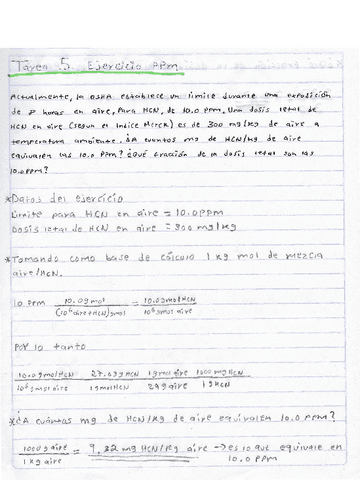 Tarea 5 Ejercicio PPm
Actualmente, la OSHA establece un limite durante una exposición
de 8 horas en aire, Para HCN, de 10.0 PPm. Una dosis letal de
HCN en aire (segun el Indice Merck) es de 300 mg/kg de aire a
temperatura ambiente. ¿A cuantos mg de HCN/kg de aire
equivalen las 10.0 PPm? ¿Qué fracción de la dosis letal son las
10.0 PPm?
*Datos del ejercicio
Limite para HCN en aire = 10.0 PPm
Dosis letal de HCN en aire = 300 mg/kg
*Tomando como base de cálculo 1 kg mol de mezcla
aire/HCN.
10 PPm 10.0gmol / (10⁶ aire+HCN)gmol = 10.0gmolHCN / 10⁶gmol aire
Por lo tanto
10.0gmolHCN 27.03gHCN 1gmol aire 1000mgHCN
10⁶gmol aire 1gmolHCN 29g aire 1gHCN
*¿A cuántos mg de HCN/Kg de aire equivalen 10.0 PPm?
1000g aire / 1kg aire = 9.32 mg HCN/Kg aire → es lo que equivale en
10.0 PPm